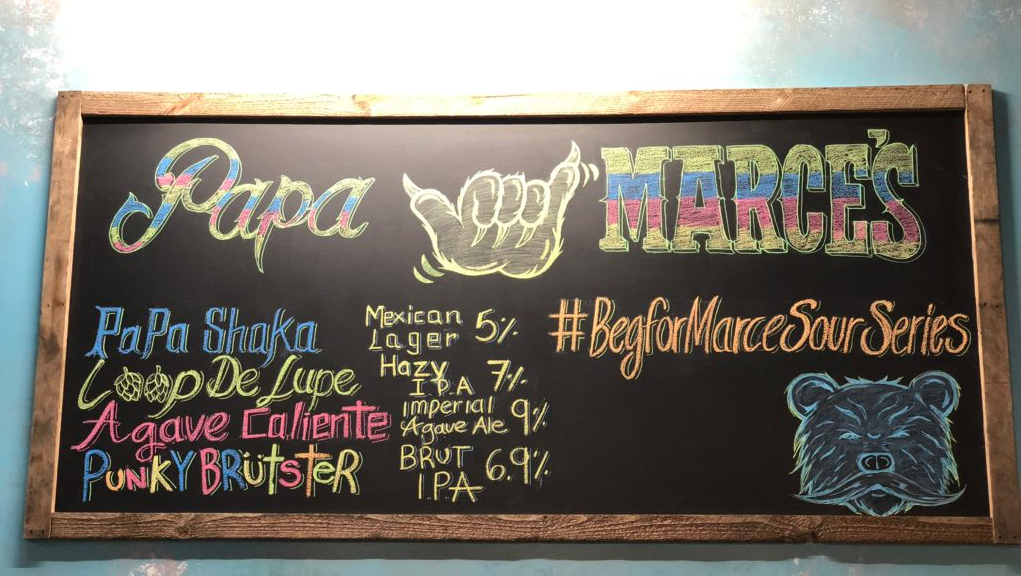 Papa MARCE'S
PaPa Shaka Mexican Lager 5%
Loop De Lupe Hazy IPA 7%
Agave Caliente Imperial Agave Ale 9%
PUNKY BRÜTSTER BRUT IPA 6.9%
#BegforMarceSourSeries